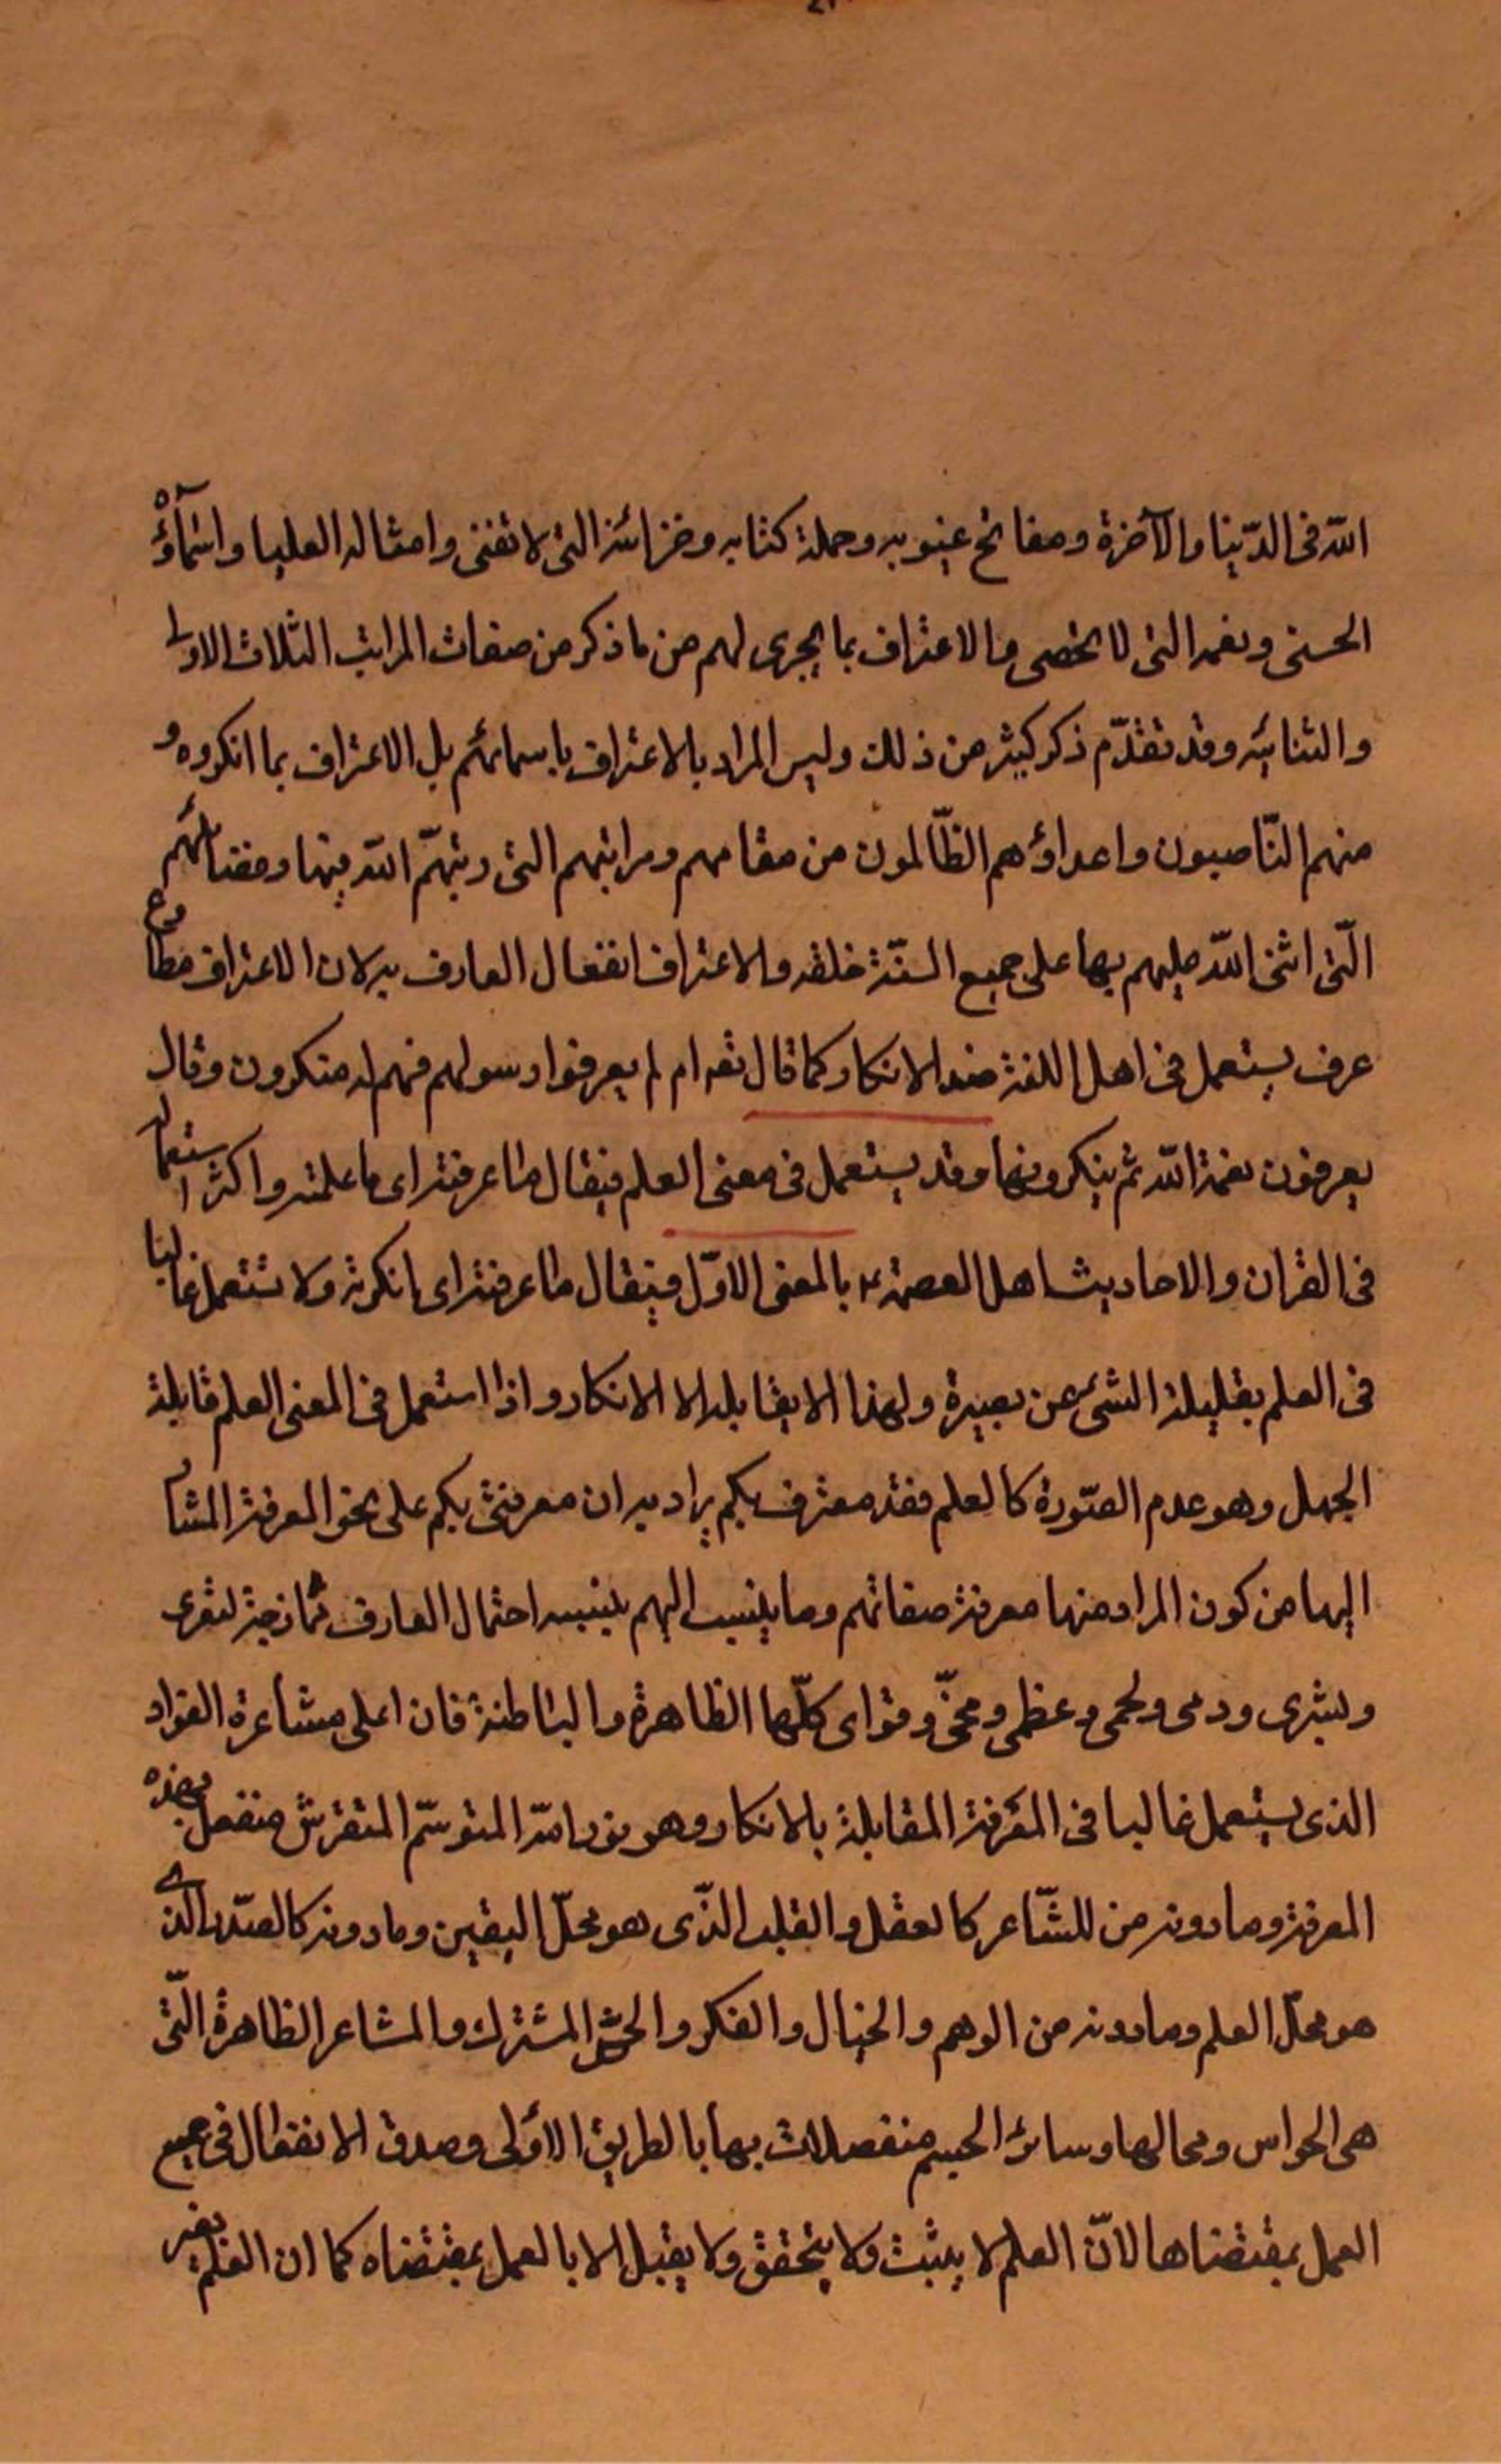 الله فى الدّينا والآخرة ومفاتح غيوبه وحملة كتابه وخزائنه التى لا تفنى وامثاله العليا واسمآؤه
الحسنى ونعمه التى لا تحصى والاعتراف بما يجرى لهم من ما ذكر من صفات المراتب الثلاث الاولى
والثنائيه وقد تقدّم ذكر كثير من ذلك وليس المراد بالاعتراف باسمائهم بل الاعتراف بما انكروه و
منهم النّاصبون واعداؤهم الظّالمون من مقامهم ومراتبهم التى رتبهمّ الله فيها وفضائلهم
الّتى اثنى الله عليهم بها على جميع السنّة خلقه والاعتراف انفعال العارف به لان الاعتراف مطاوع
عرف يستعمل فى اهل اللغة ضد الانكار كما قال تعه ام لم يعرفوا رسولهم فهم له منكرون وقال
يعرفون نعمة الله ثم ينكرونها وقد يستعمل فى معنى العلم فيقال ما عرفته اى ما علمته واكثر استعماله
فى القران والاحاديث اهل العصمة ع بالمعنى الاوّل فيقال ما عرفته اى انكرته ولا تستعمل غالبا
فى العلم بقليلة الشئ عن بصيرة ولهذا الا يقابله الا الانكار واذا استعمل فى المعنى العلم قابلة
الجهل وهو عدم الصّورة كالعلم فقد معترف بكم يراد به ان معرفتى بكم على نحو المعرفة المشار
اليها من كون المراد منها معرفة صفاتهم وما ينسب اليهم بنسبه احتمال العارف لشعرى
وبشرى ودمى ولحمى وعظمى ومخّى وقواى كلّها الظاهرة والباطنة فان اعلى مشاعرة الفواد
الذى يستعمل غالبا فى المعرفة المقابلة بالانكار وهو نور الله المتوسّم المتفرس منفعل بهذه
المعرفة وما دونه من للشّاعر كالعقل والقلب الذّى هو محلّ اليقين وما دونه كالصّدر الذى
هو محلّ العلم وما دونه من الوهم والخيال والفكر والحسّ المشترك والمشاعر الظاهرة الّتى
هى الحواس ومحالها وسائر الجسم منفصلات بها بالطريق الاولى وصدق الانفعال فى جميع
العمل بمقتضاها لانّ العلم لا يثبت ولا يتحقق ولا يقبل الا بالعمل بمقتضاه كما ان العلم بغير